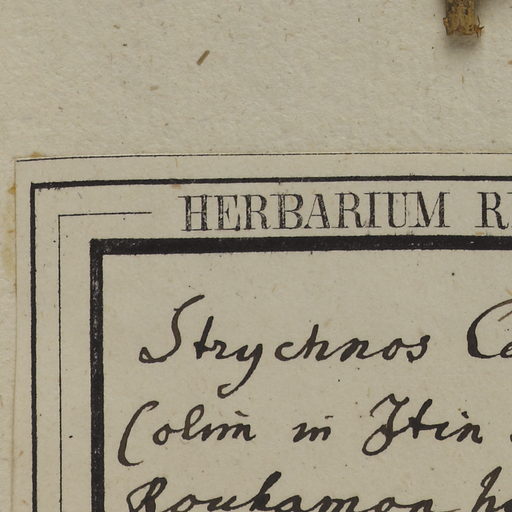 HERBARIUM R
Strychnos C
Colim in Itin
Rouhamon h